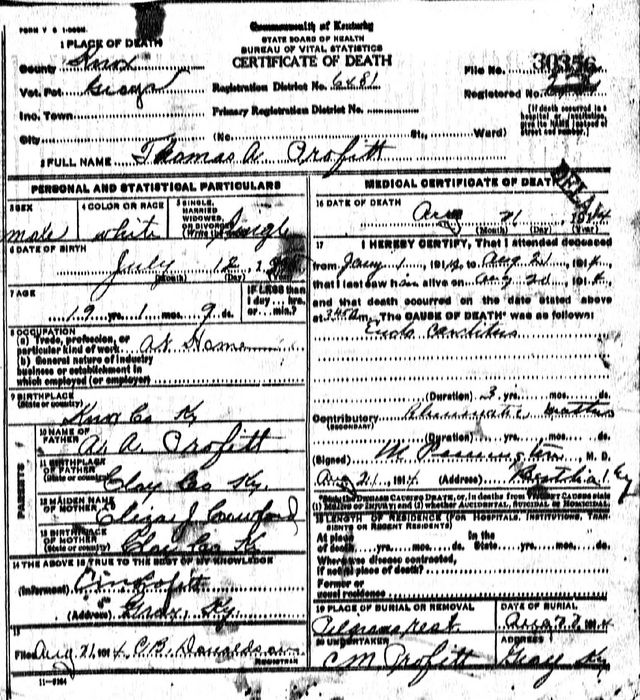 FORM V S 1-
Commonwealth of Kentucky
STATE BOARD OF HEALTH
BUREAU OF VITAL STATISTICS
CERTIFICATE OF DEATH
1 PLACE OF DEATH
County Knox
Vot. Pct. Grays
Inc. Town
City (No. St., Ward)
Registration District No. 6481
Primary Registration District No.
File No. 30356
Registered No.
[If death occurred in a hospital or institution, give its NAME instead of street and number.]
2 FULL NAME Thomas A. Profitt
DELAY
PERSONAL AND STATISTICAL PARTICULARS
3 SEX male
4 COLOR OR RACE white
5 SINGLE, MARRIED WIDOWED, OR DIVORCED (Write the word) Single
6 DATE OF BIRTH
July 12, 1
(Month) (Day) (Year)
7 AGE
19 yrs. 1 mos. 9 ds.
IF LESS than 1 day....hrs. or....min.?
8 OCCUPATION
(a) Trade, profession, or particular kind of work at Home
(b) General nature of industry business or establishment in which employed (or employer)
9 BIRTHPLACE
(State or country) Knox Co Ky
PARENTS
10 NAME OF FATHER A. A. Profitt
11 BIRTHPLACE OF FATHER (State or country) Clay Co Ky.
12 MAIDEN NAME OF MOTHER Eliza J Crawford
13 BIRTHPLACE OF MOTHER (State or country) Clay Co Ky
14 THE ABOVE IS TRUE TO THE BEST OF MY KNOWLEDGE
(Informant) Profitt
(Address) Gray, Ky
15
Filed Aug 21, 1914 C B Donaldson
REGISTRAR
11—
MEDICAL CERTIFICATE OF DEATH
16 DATE OF DEATH
Aug 21 1914
(Month) (Day) (Year)
17 I HEREBY CERTIFY, That I attended deceased
from Jany 1, 191 to Aug 21, 1914
that I last saw him alive on Aug 20, 1914,
and that death occurred on the date stated above
at 3.45 m. The CAUSE OF DEATH* was as follows:
Endo Carditis
(Duration) 3 yrs. mos. ds.
Contributory Rheumatic
(SECONDARY)
(Duration) yrs. mos. ds.
(Signed) M Pennington, M. D.
Aug 21, 1914 (Address) Ky
*State the DISEASE CAUSING DEATH, or, in deaths from VIOLENT CAUSES state (1) MEANS OF INJURY; and (2) whether ACCIDENTAL, SUICIDAL or HOMICIDAL.
18 LENGTH OF RESIDENCE (FOR HOSPITALS, INSTITUTIONS, TRANSIENTS OR RECENT RESIDENTS)
At place of death yrs. mos. ds. In the State yrs. mos. ds.
Where was disease contracted, If not at place of death?
Former or usual residence
19 PLACE OF BURIAL OR REMOVAL
Pilgrams rest
DATE OF BURIAL
Aug 22 1914
20 UNDERTAKER
C M Profitt
ADDRESS
Gray Ky